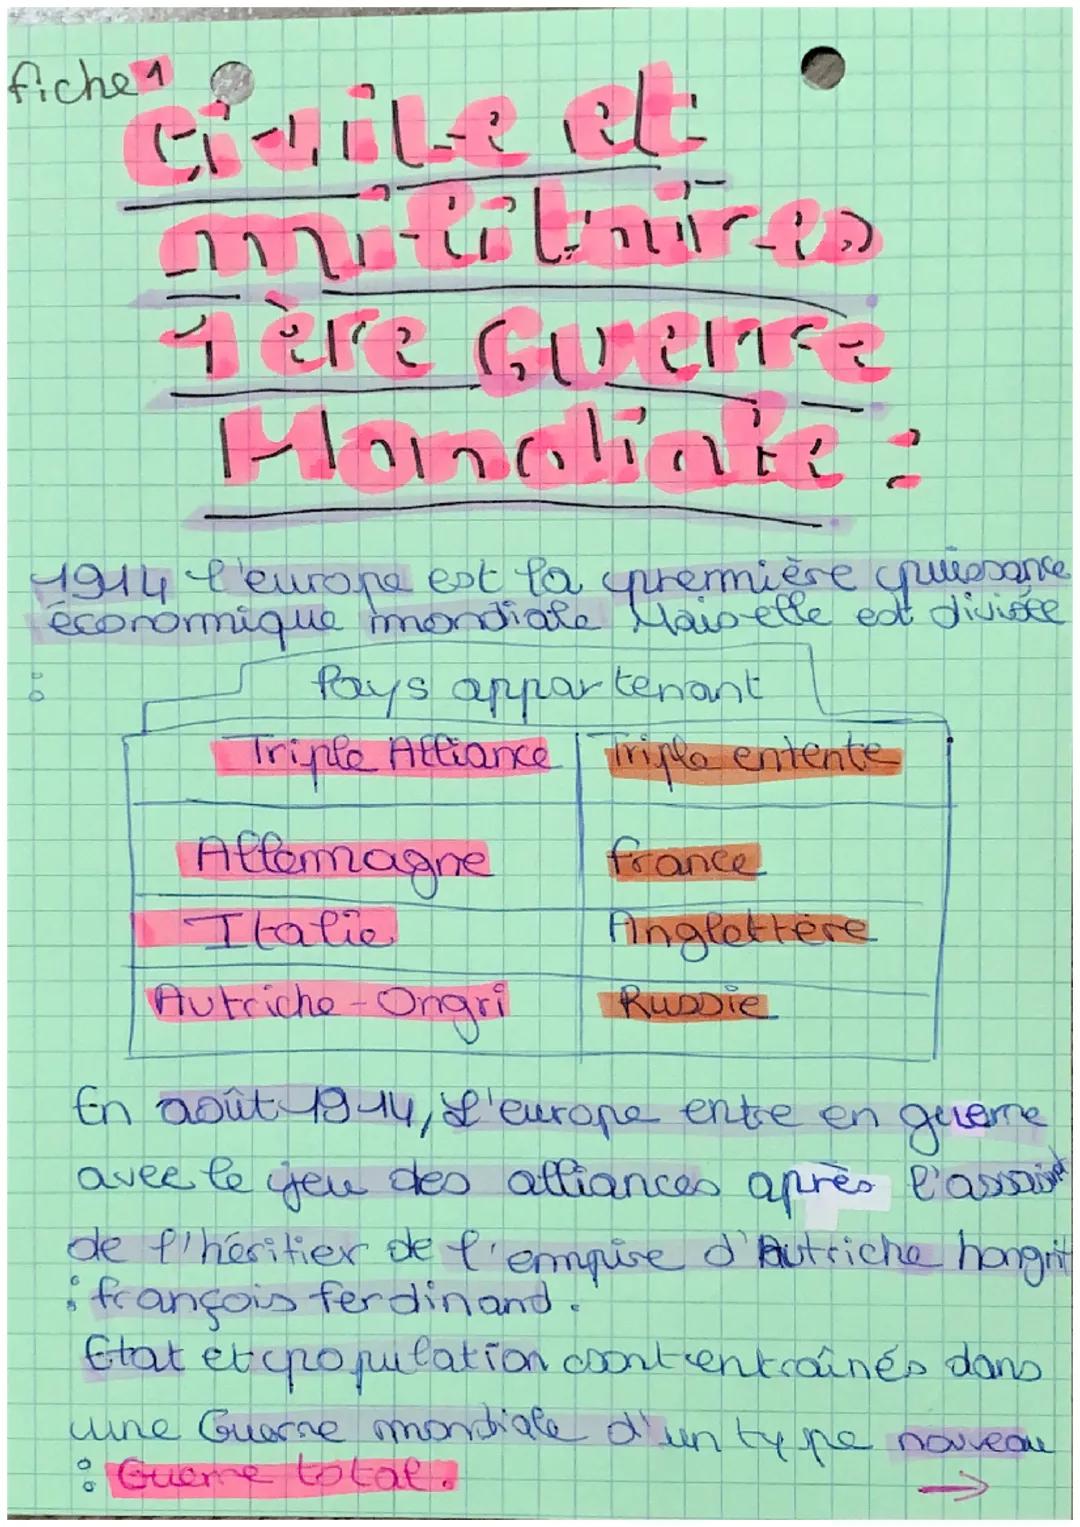 fiche 1
Civile et
militaires
1ère Guerre
Mondiale :
1914 l'europe est la première puissance
économique mondiale Mais elle est divisée
:
Pays appartenant
Triple Alliance Triple entente
Allemagne france
Italie Anglettère
Autriche-Ongri Russie
En août 1914, L'europe entre en guerre
avec le jeu des alliances après l'assasinat
de l'héritier de l'empire d'Autriche hongrit
: françois ferdinand.
Etat et population sont entraînés dans
une Guerre mondiale d'un type nouveau
: Guerre total. →